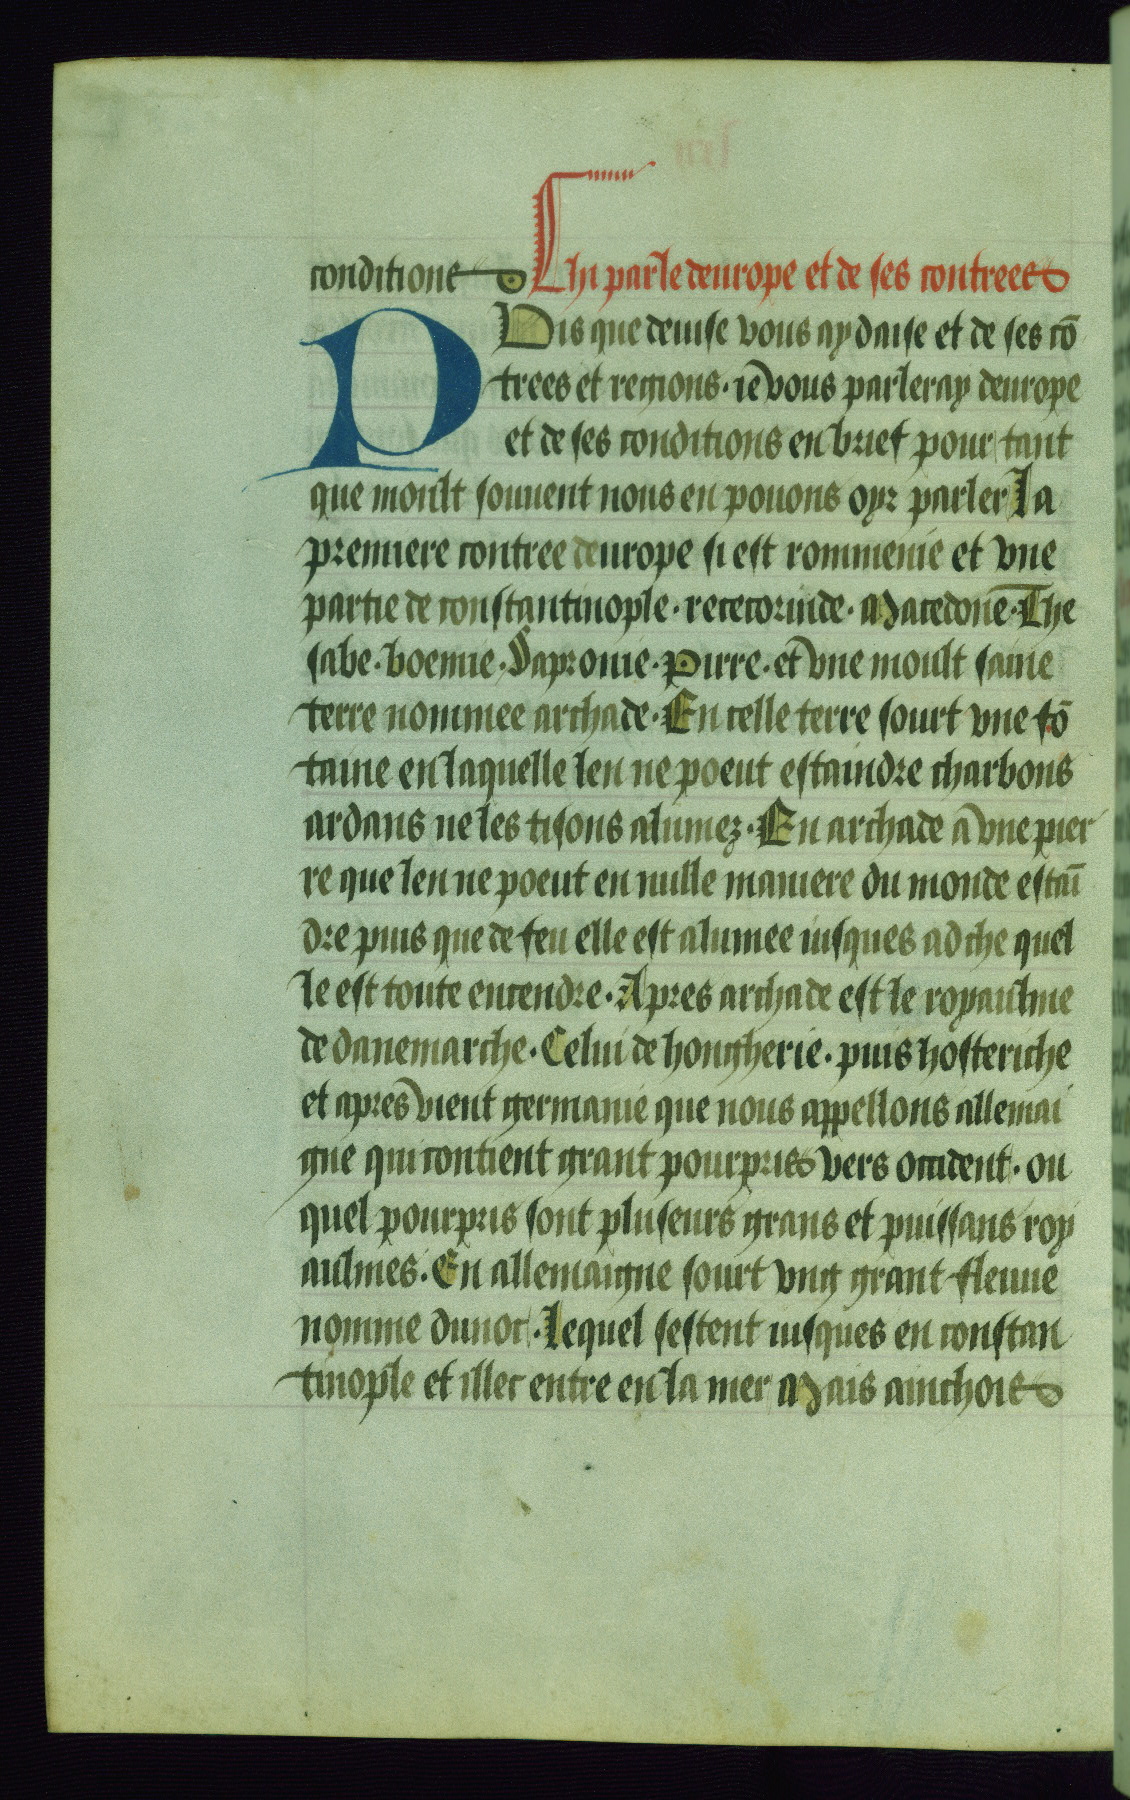 conditions Chi parle deurope et de ses contrees
PUis que deuise vous ay daise et de ses cō
trees et regions · ie vous parleray deurope
et de ses conditions en brief pour tant
que moult souuent nous en pouons oyr parler La
premiere contree deurope si est rommenie et vne
partie de constantinople · rececorinde · Macedone · The
sabe · boemie · Sapronie · Pirre · et vne moult saine
terre nommee archade · En celle terre sourt vne fō
taine en laquelle len ne poeut estaindre charbons
ardans ne les tisons alumez · En archade a vne pier
re que len ne poeut en nulle maniere du monde estaī
dre puis que de feu elle est alumee iusques ad che quel
le est toute encendre · Apres archade est le royaulme
de danemarche · Celui de hongherie · puis hosteriche
et apres vient germanie que nous appellons allemai
gne qui contient grant pourpris vers occident · ou
quel pourpris sont pluseurs grans et puissans roy
aulmes · En allemaigne sourt vng grant fleuue
nomme dunoe · Lequel sestent iusques en constan
tinople et illec entre en la mer Mais ainchois